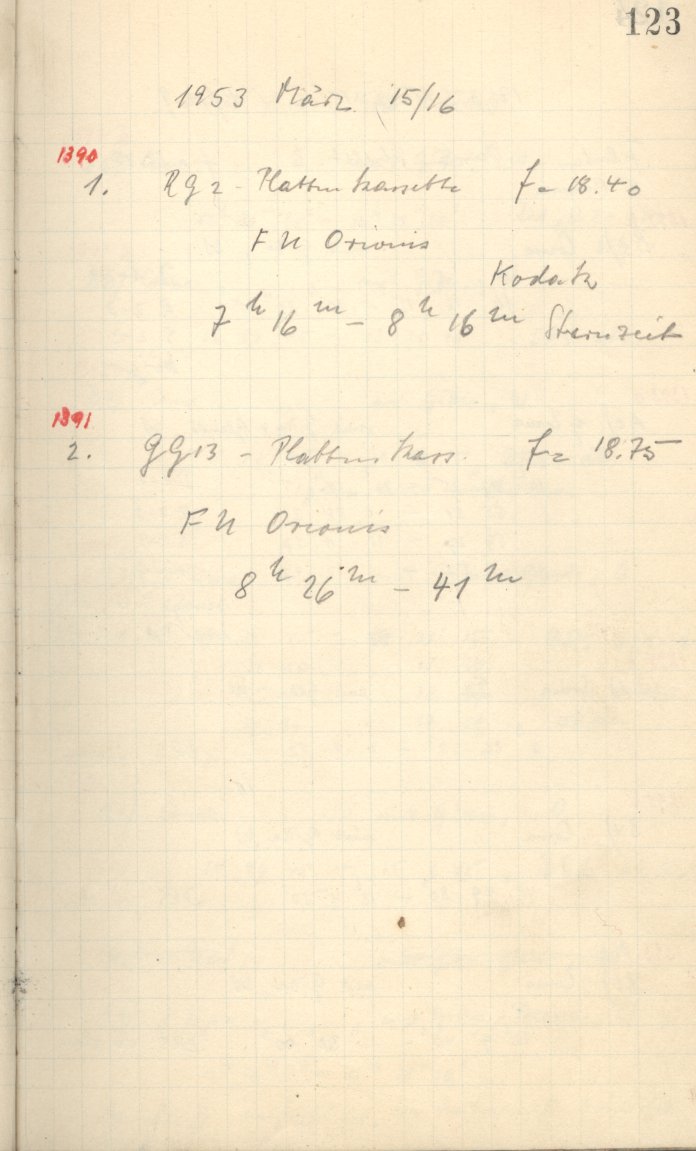 123
1953 März 15/16
1390
1. RG2 - Plattenkassette f = 18.40
FU Orionis
Kodak
7h 16m - 8h 16m Sternzeit
1391
2. GG13 - Plattenkass. f = 18.75
FU Orionis
8h 26m - 41m